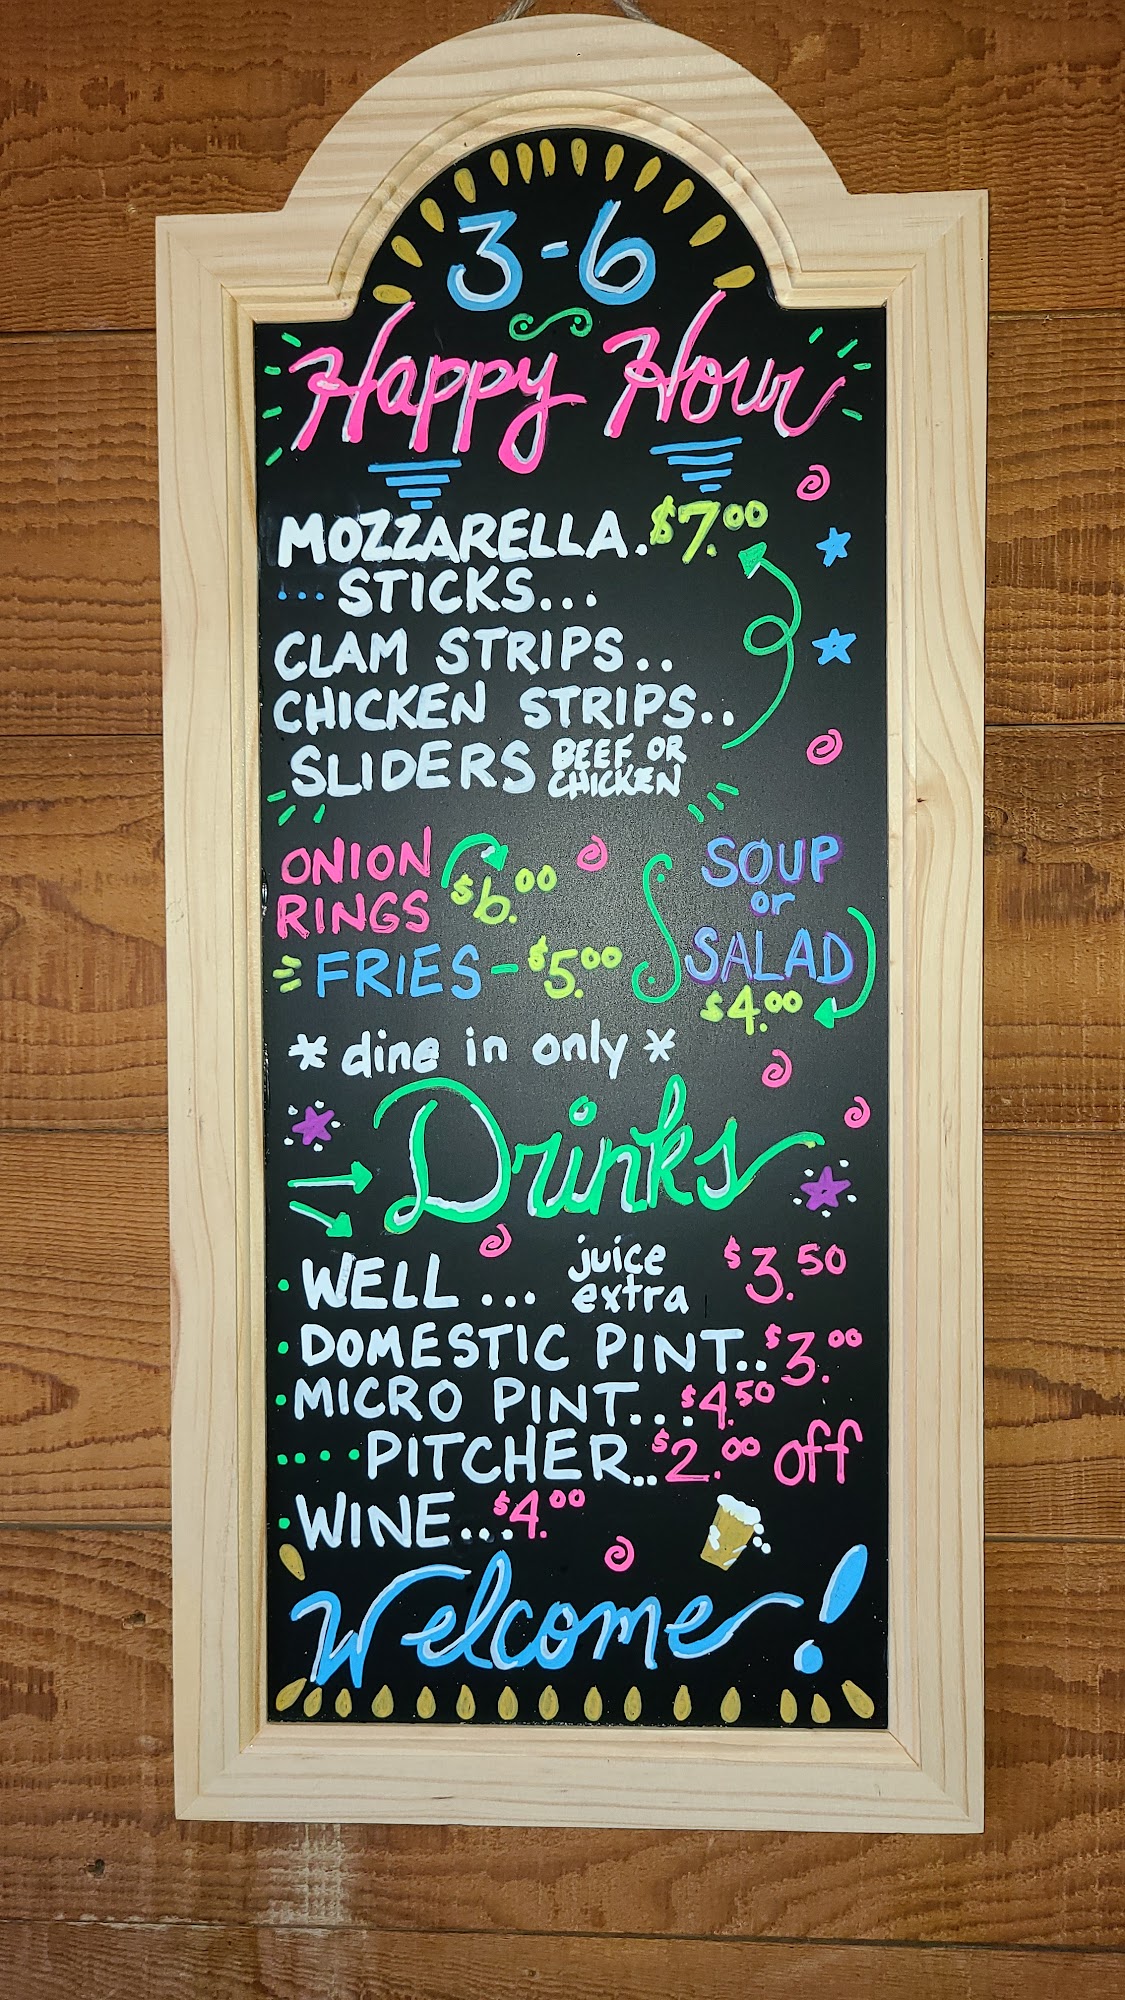 3-6
Happy Hour
MOZZARELLA. $7.00
... STICKS...
CLAM STRIPS..
CHICKEN STRIPS..
SLIDERS BEEF OR
CHICKEN
ONION
RINGS $6.00
FRIES - $5.00
SOUP
or
SALAD
$4.00
* dine in only *
Drinks
WELL ... juice
extra $3.50
DOMESTIC PINT.. $3.00
MICRO PINT... $4.50
.... PITCHER.. $2.00 off
WINE... $4.00
Welcome!